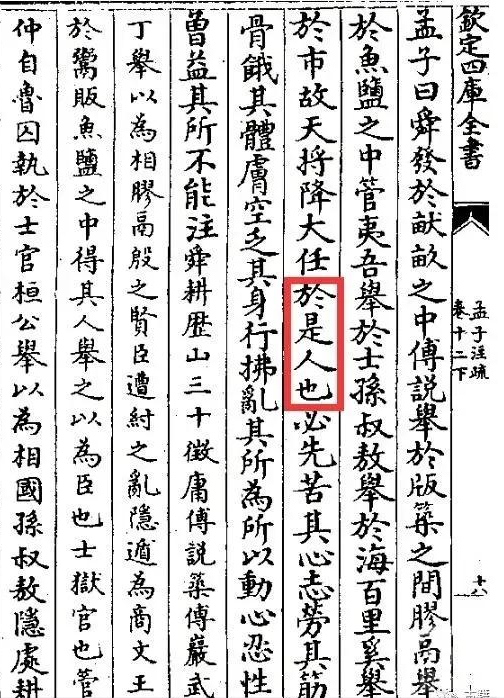 欽定四庫全書
孟子注疏
卷十二下
十八
孟子曰舜發於畎畝之中傅説舉於版築之間膠鬲舉
於魚鹽之中管夷吾舉於士孫叔敖舉於海百里奚舉
於市故天將降大任於是人也必先苦其心志勞其筋
骨餓其體膚空乏其身行拂亂其所為所以動心忍性
曾益其所不能注舜耕歴山三十徵庸傅説築傅巖武
丁舉以為相膠鬲殷之賢臣遭紂之亂隱遁為商文王
於鬻販魚鹽之中得其人舉之以為臣也士獄官也管
仲自魯囚執於士官桓公舉以為相國孫叔敖隱處耕